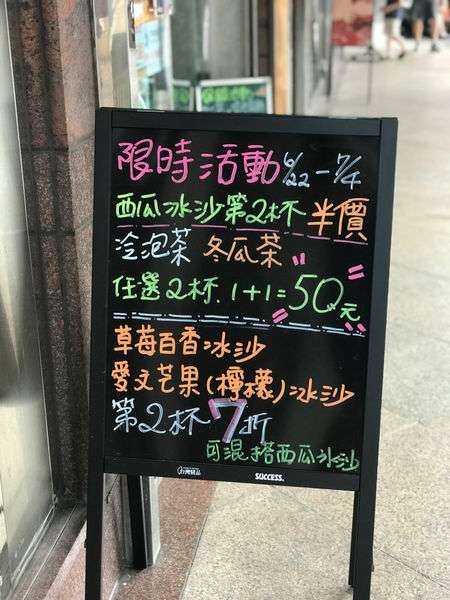 限時活動 6/22-7/4
西瓜冰沙第2杯 半價
冷泡茶 冬瓜茶
任選2杯.1+1=50元
草莓百香冰沙
愛文芒果(檸檬)冰沙
第2杯7折
可混搭西瓜冰沙
SUCCESS.